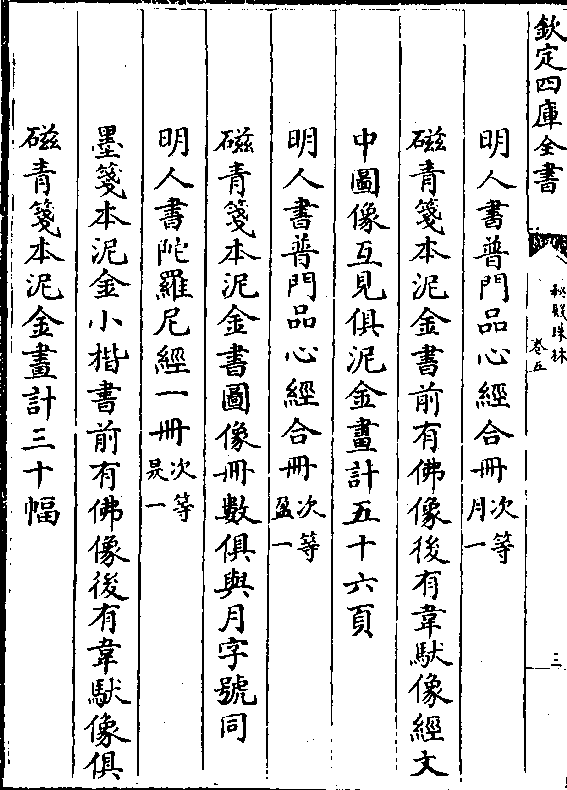 欽定四庫全書
秘殿珠林
卷五
三
明人書普門品心經合冊次等月一
磁青箋本泥金書前有佛像後有韋馱像經文
中圖像互見俱泥金畫計五十六頁
明人書普門品心經合冊次等盈一
磁青箋本泥金書圖像冊數俱與月字號同
明人書陀羅尼經一冊次等昃一
墨箋本泥金小楷書前有佛像後有韋馱像俱
磁青箋本泥金畫計三十幅